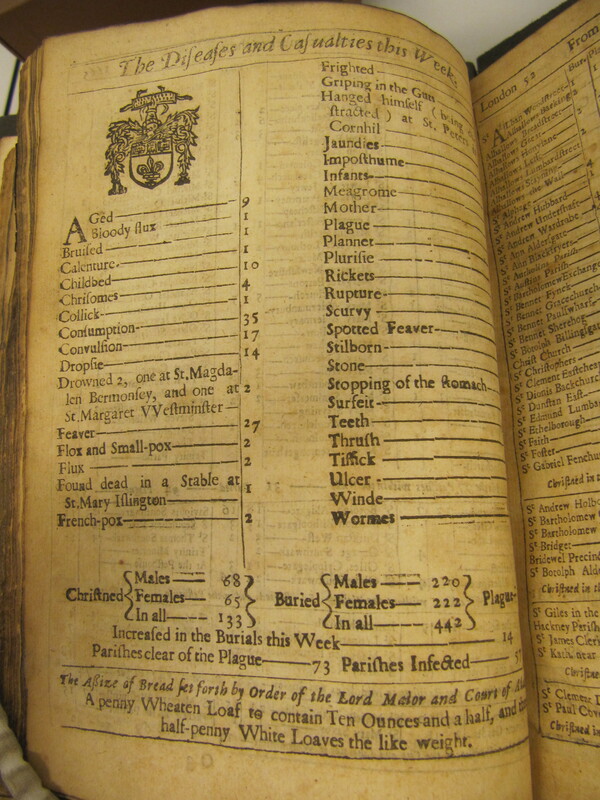 The Diſeaſes and Caſualties this Week.
AGed 9
Bloody flux 1
Bruiſed 1
Calenture 1
Childbed 10
Chriſomes 4
Collick 1
Conſumption 35
Convulſion 17
Dropſie 14
Drowned 2, one at St. Magda-
len Bermonſey, and one at 2
St. Margaret VVeſtminſter
Feaver 27
Flox and Small-pox 2
Flux 2
Found dead in a Stable at 1
St. Mary Iſlington
French-pox 2
Frighted
Griping in the Guts
Hanged himſelf (being
ſtracted) at St. Peters
Cornhil
Jaundies
Impoſthume
Infants
Meagrome
Mother
Plague
Plannet
Pluriſie
Rickets
Rupture
Scurvy
Spotted Feaver
Stilborn
Stone
Stopping of the ſtomach
Surfeit
Teeth
Thruſh
Tiſſick
Ulcer
Winde
Wormes
Chriſtned Males 68 Females 65 In all 133
Buried Males 220 Females 222 In all 442 Plague
Increaſed in the Burials this Week 14
Pariſhes clear of the Plague 73 Pariſhes Infected
The Aſsize of Bread ſet forth by Order of the Lord Maior and Court of
A penny Wheaten Loaf to contain Ten Ounces and a half, and
half-penny White Loaves the like weight.
London 52 From
St Andrew Hubbard
St Andrew Underſhaft
St Andrew Wardrobe
St Ann Alderſgate
St Ann Blackfryers
St Bennet Fynck
St Bennet Gracechurch
St Bennet Paulſwharf
St Bennet Sherehog
Chriſt Church
St Chriſtophers
St Clement Eaſtcheap
St Dionis Backchurch
St Dunſtan Eaſt
St Edmund Lumbard
St Ethelborough
St Faith
St Foſter
St Gabriel Fenchurch
Chriſtned in
St Andrew Holborn
St Bartholomew
St Bartholomew
St Bridget
Bridewel Precinct
St Botolph
Chriſtned in
St Giles in the
Hackney Pariſh
St James
St Kath. near
Chriſtned
St Clement
St Paul Cov
Chriſtned in